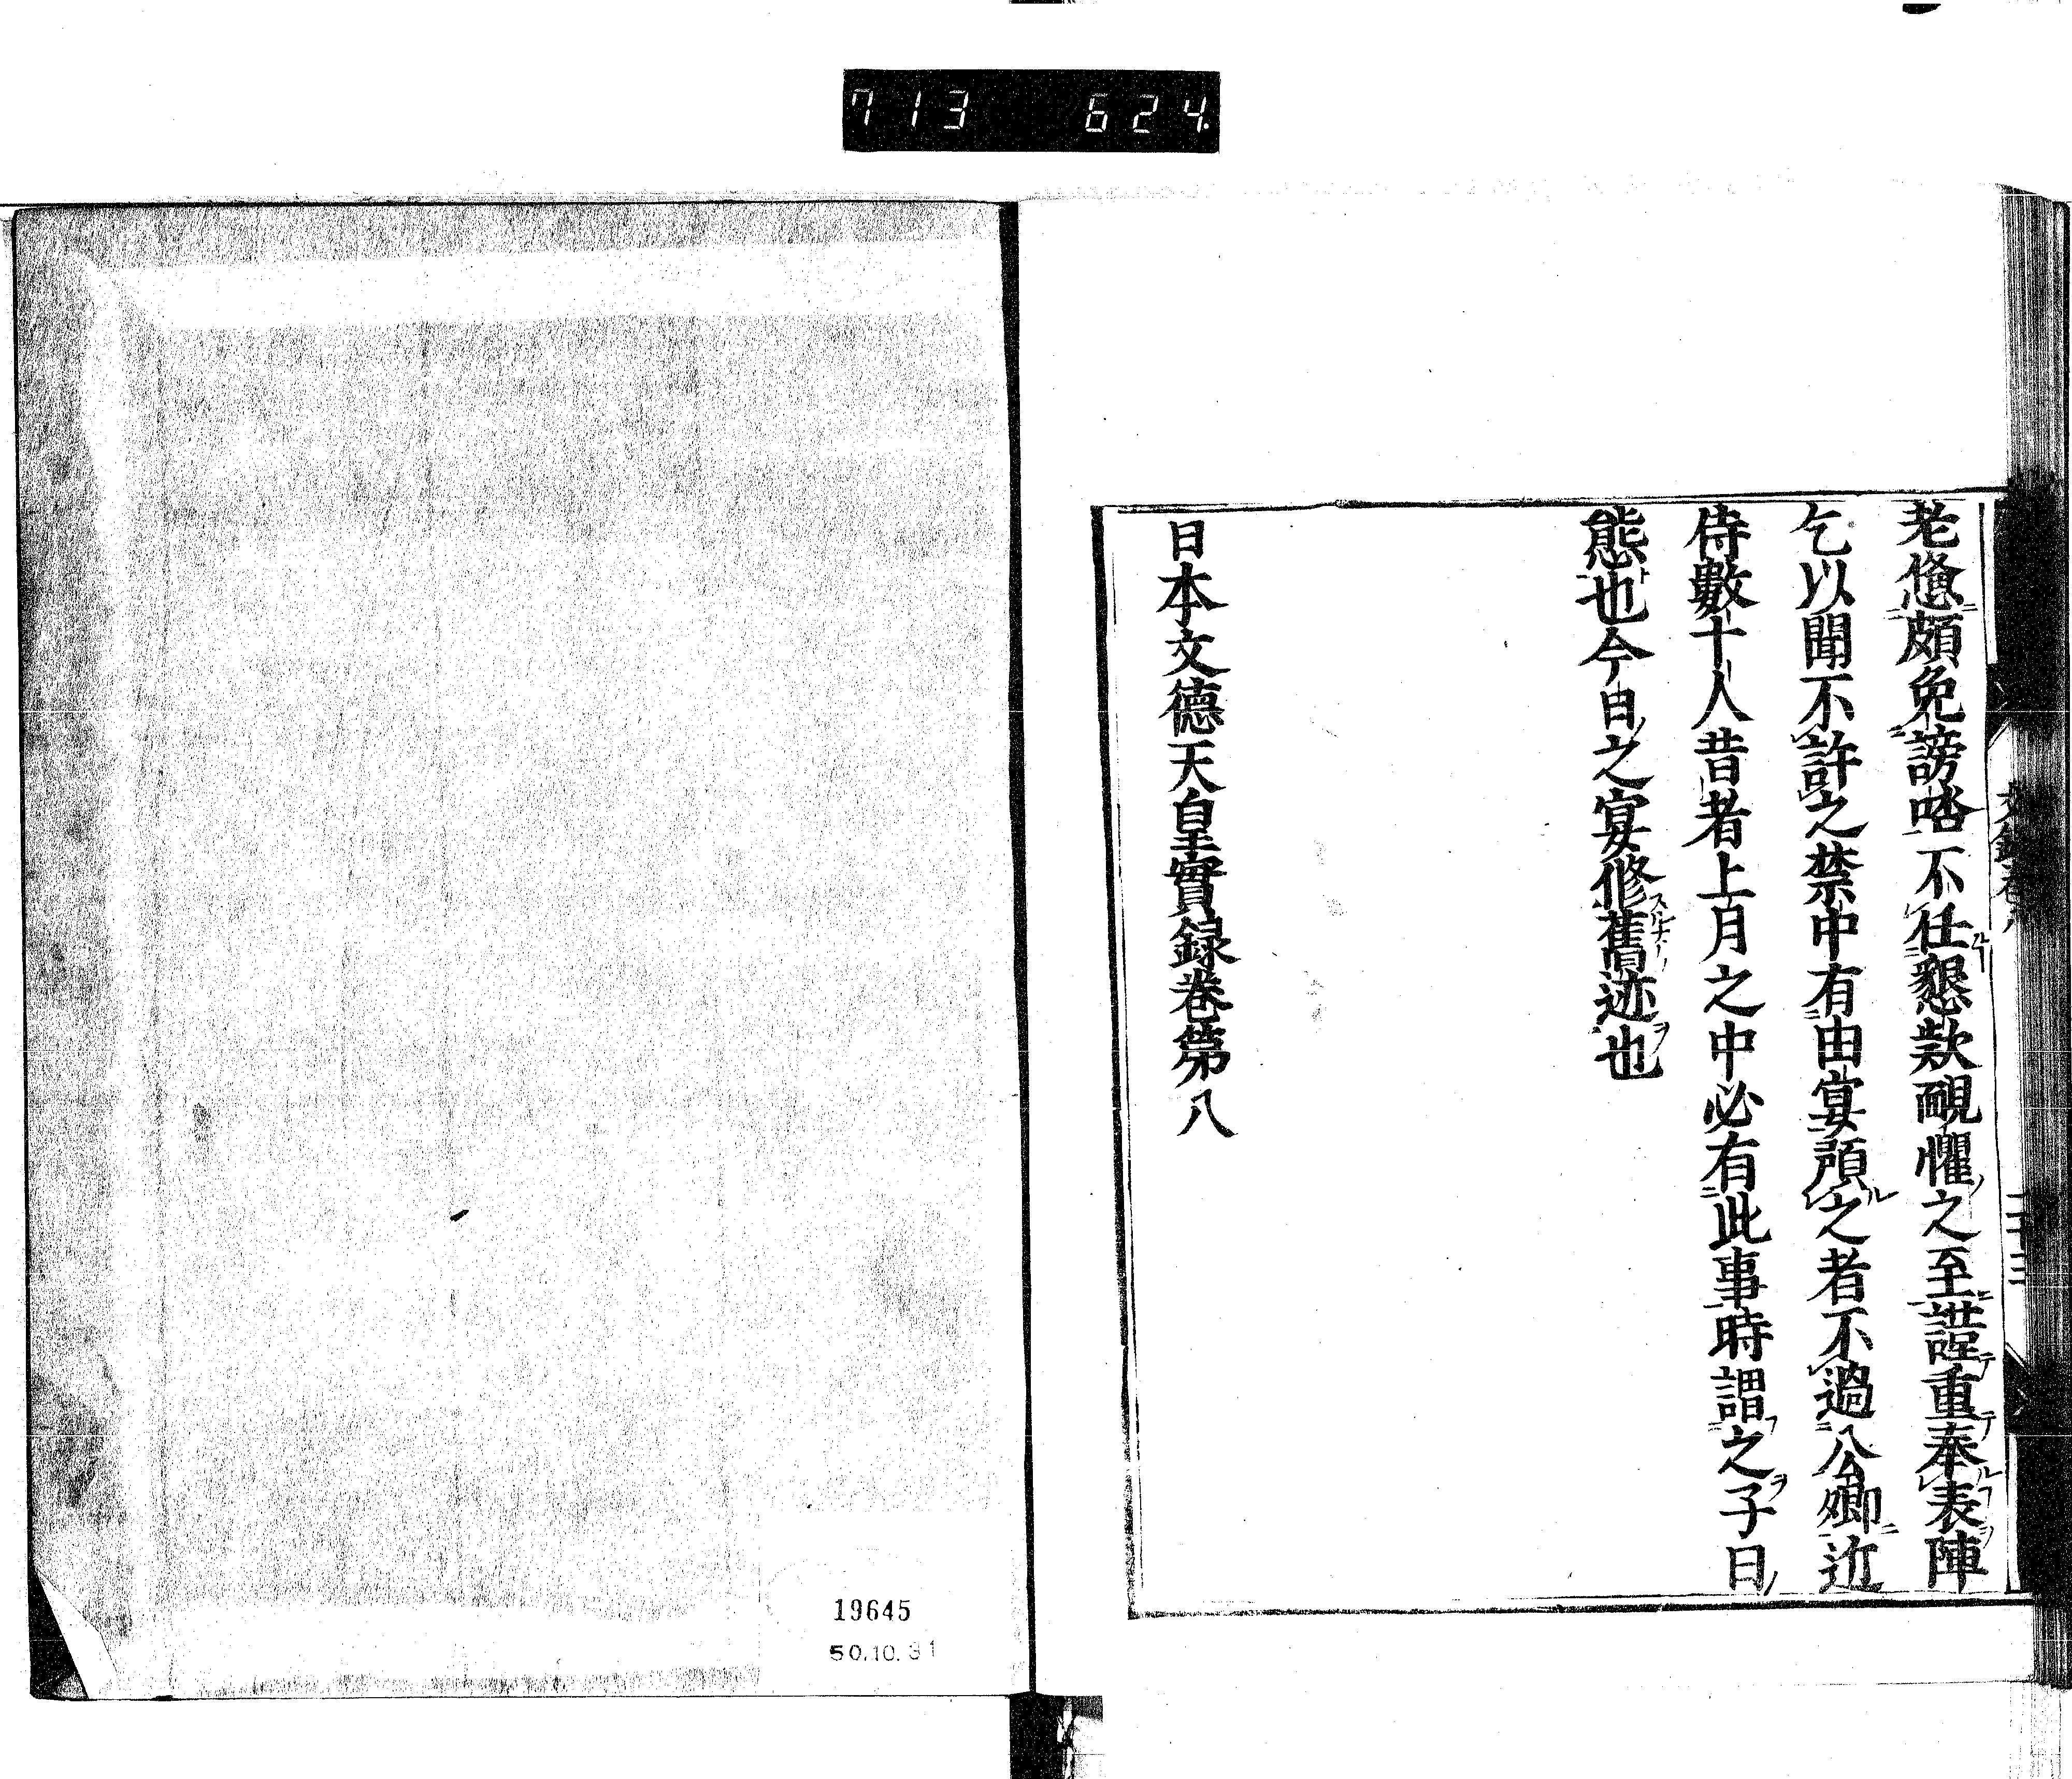 713 624
老憊頗免謗㗳不任懇款靦懼之至謹重奉表陣
乞以聞不許之禁中有曲宴預之者不過公卿近
侍數十人昔者上月之中必有此事時謂之子日
態也今日之宴修舊迹也
日本文德天皇實録卷第八
19645
50.10.31